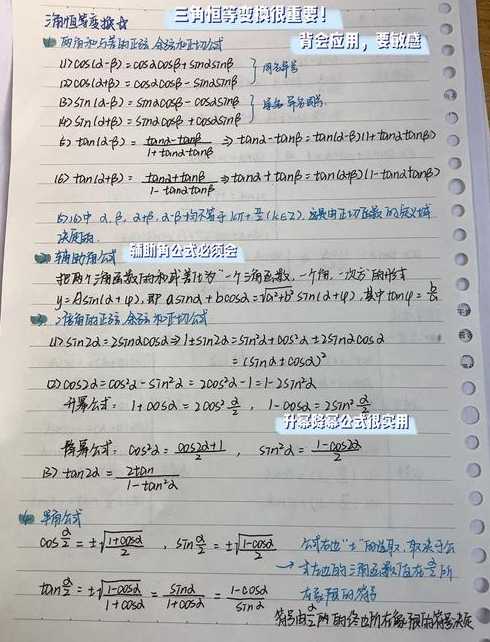 三角恒等变换☆
三角恒等变换很重要!
两角和与差的正弦、余弦和正切公式
背会应用,要敏感
(1) cos(α-β) = cosαcosβ + sinαsinβ
(2) cos(α+β) = cosαcosβ - sinαsinβ
同名异号
(3) sin(α-β) = sinαcosβ - cosαsinβ
(4) sin(α+β) = sinαcosβ + cosαsinβ
异名同号
(5) tan(α-β) = (tanα-tanβ)/(1+tanαtanβ) ⇒ tanα-tanβ = tan(α-β)(1+tanαtanβ)
(6) tan(α+β) = (tanα+tanβ)/(1-tanαtanβ) ⇒ tanα+tanβ = tan(α+β)(1-tanαtanβ)
(5)(6)中 α, β, α+β, α-β均不等于 kπ+π/2 (k∈Z), 这是由正切函数的定义域
决定的.
辅助角公式
辅助角公式必须会
把两个三角函数的和或差化为"一个三角函数,一个角,一次方"的形式
y=Asin(α+φ), 即 asinα+bcosα=√(a²+b²) sin(α+φ), 其中tanφ=b/a
倍角的正弦、余弦和正切公式
(1) sin2α=2sinαcosα⇒1±sin2α=sin²α+cos²α±2sinαcosα
=(sinα±cosα)²
(2) cos2α=cos²α-sin²α=2cos²α-1=1-2sin²α
升幂公式: 1+cosα=2cos²α/2, 1-cosα=2sin²α/2
升幂降幂公式很实用
降幂公式: cos²α=(cos2α+1)/2, sin²α=(1-cos2α)/2
(3) tan2α=2tan/(1-tan²α)
半角公式
cosα/2=±√((1+cosα)/2), sinα/2=±√((1-cosα)/2)
公式右边"±"的选取,取决于公
tanα/2=±√((1-cosα)/(1+cosα))=sinα/(1+cosα)=(1-cosα)/sinα
→式左边的三角函数值在α/2所
在象限的符号
符号由α/2的终边所在象限的符号决定